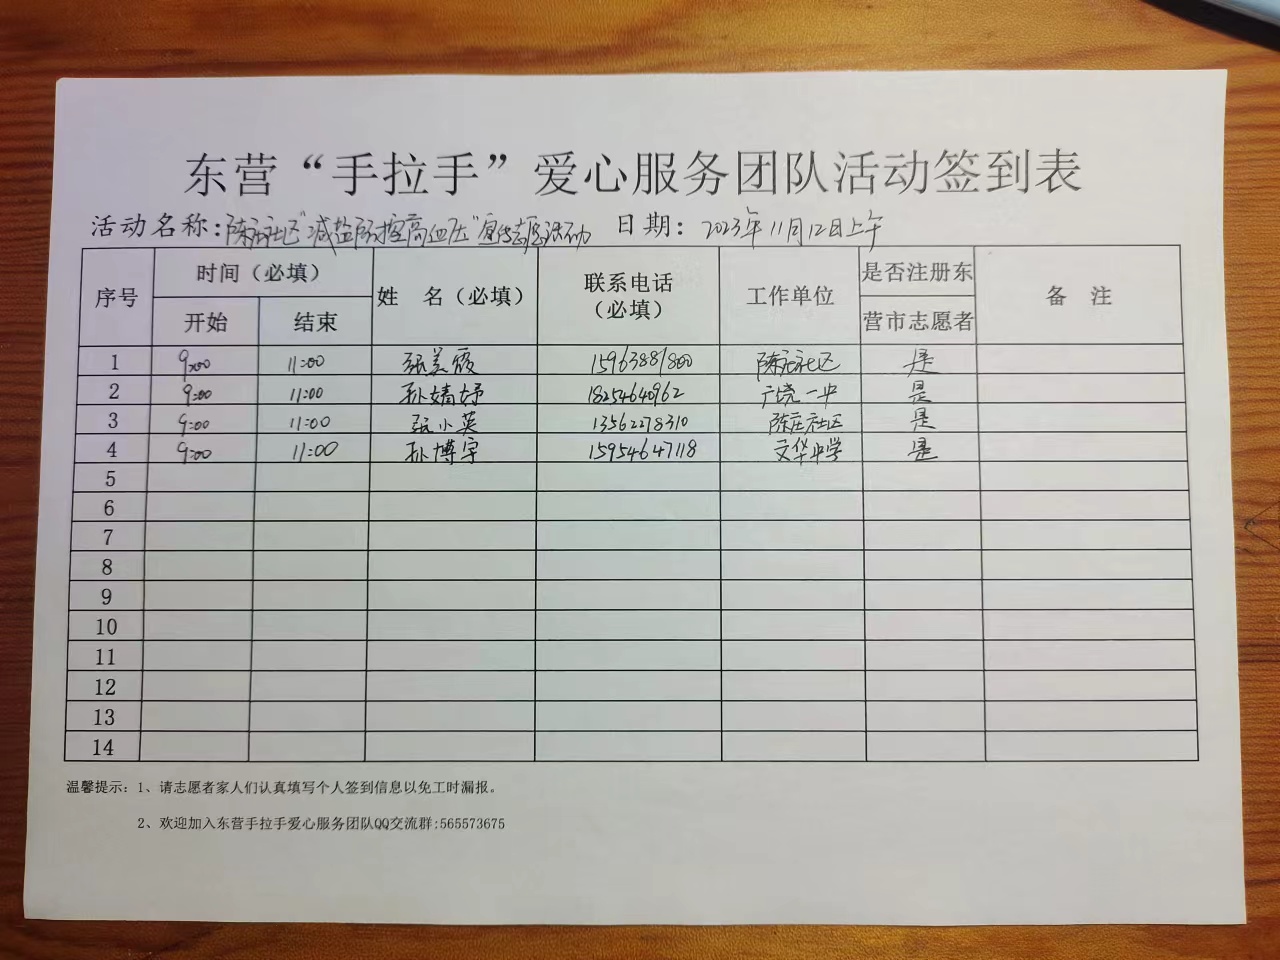 东营“手拉手”爱心服务团队活动签到表
活动名称:陈庄社区“减盐防控高血压”宣传志愿活动 日期: 2023年11月12日上午
序号 时间(必填) 姓 名(必填) 联系电话(必填) 工作单位 是否注册东营市志愿者 备 注
开始 结束
1 9:00 11:00 张美霞 15963881800 陈庄社区 是
2 9:00 11:00 孙婧妤 18254640962 广饶一中 是
3 9:00 11:00 张小英 13562278310 陈庄社区 是
4 9:00 11:00 孙博宇 15954647118 文华中学 是
5
6
7
8
9
10
11
12
13
14
温馨提示: 1、请志愿者家人们认真填写个人签到信息以免工时漏报。
2、欢迎加入东营手拉手爱心服务团队QQ交流群:565573675